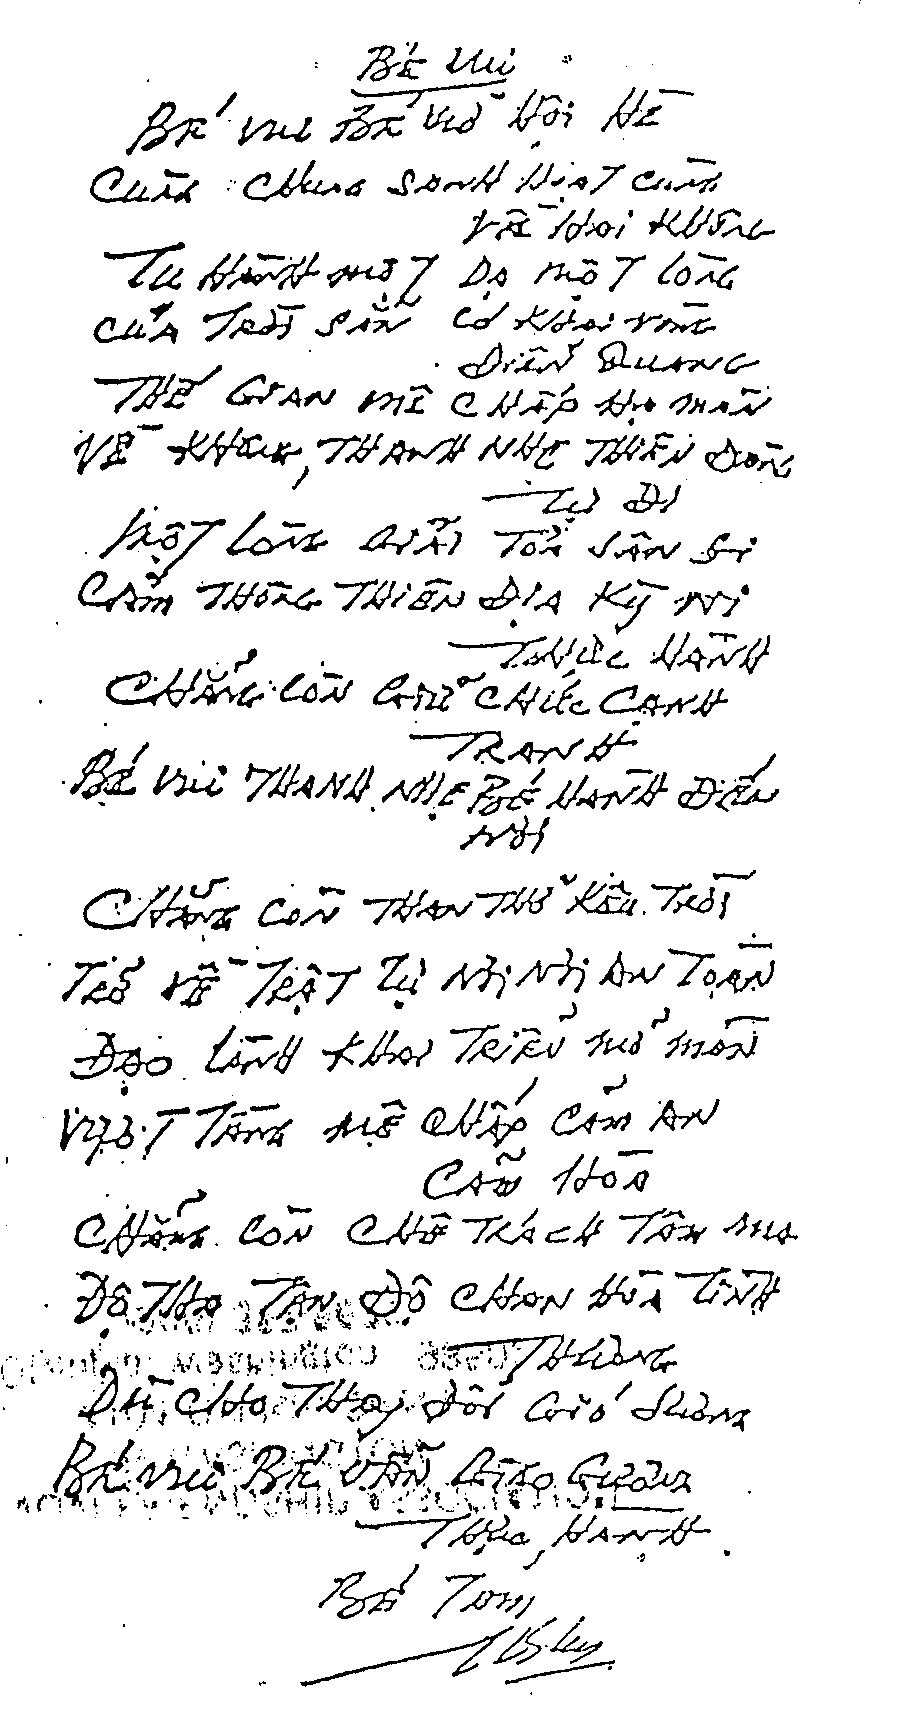 BÉ VUI
BÉ VUI BÉ VUI HỘI HÈ
CÙNG CHUNG SANH HOẠT CÙNG
VỀ HOI KHÔNG
TU HÀNH MỘT DẠ MỘT LÒNG
CỦA TRỜI SẴN CÓ KHAI VÒNG
ĐIỂN QUANG
THẾ GIAN MÊ CHẤP HỌ MÀN
VỀ KHÔNG, THANH NHẸ THIÊN ĐÀNG
TỰ ĐI
MỘT LÒNG GIẢI TỎA SÂN SI
CẢM THÔNG THIÊN ĐỊA KỲ NI
THỰC HÀNH
CHẲNG CÒN GIỮ CHỨC CẠNH
TRANH
BÉ VUI THANH NHẸ BÉ HÀNH ĐẾN
NƠI
CHẲNG CÒN THAN THỞ KÊU TRỜI
TRỞ VỀ TRẬT TỰ NƠI NƠI AN TOÀN
ĐẠO LÀNH KHAI TRIỂN MỞ MÀN
VƯỢT TẦNG MÊ CHẤP CẢM AN
CẢM HÓA
CHẲNG CÒN CHÊ TRÁCH TÂM MA
ĐỘ THA TẬN ĐỘ CHAN HÒA TÌNH
THƯƠNG
DÙ CHO THAY ĐỔI GIÓ SƯƠNG
BÉ VUI BÉ VẪN GIEO GƯƠNG
THỰC HÀNH
BÉ TÁM